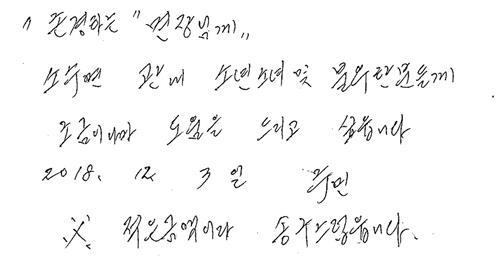 "존경하는 "면장님께"
소수면 관내 소년소녀 및 불우한분들께
조금이나마 도움을 드리고 싶습니다
2018. 12. 3일 주민
※ 적은금액이라 송구스럽습니다.